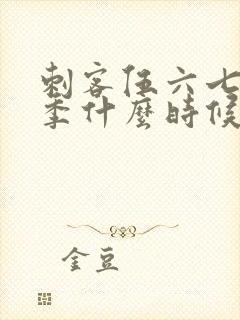 刺客伍六七
季什麼時候
金豆